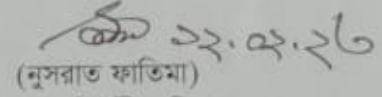 ২২.০২.২৬
(নুসরাত ফাতিমা)